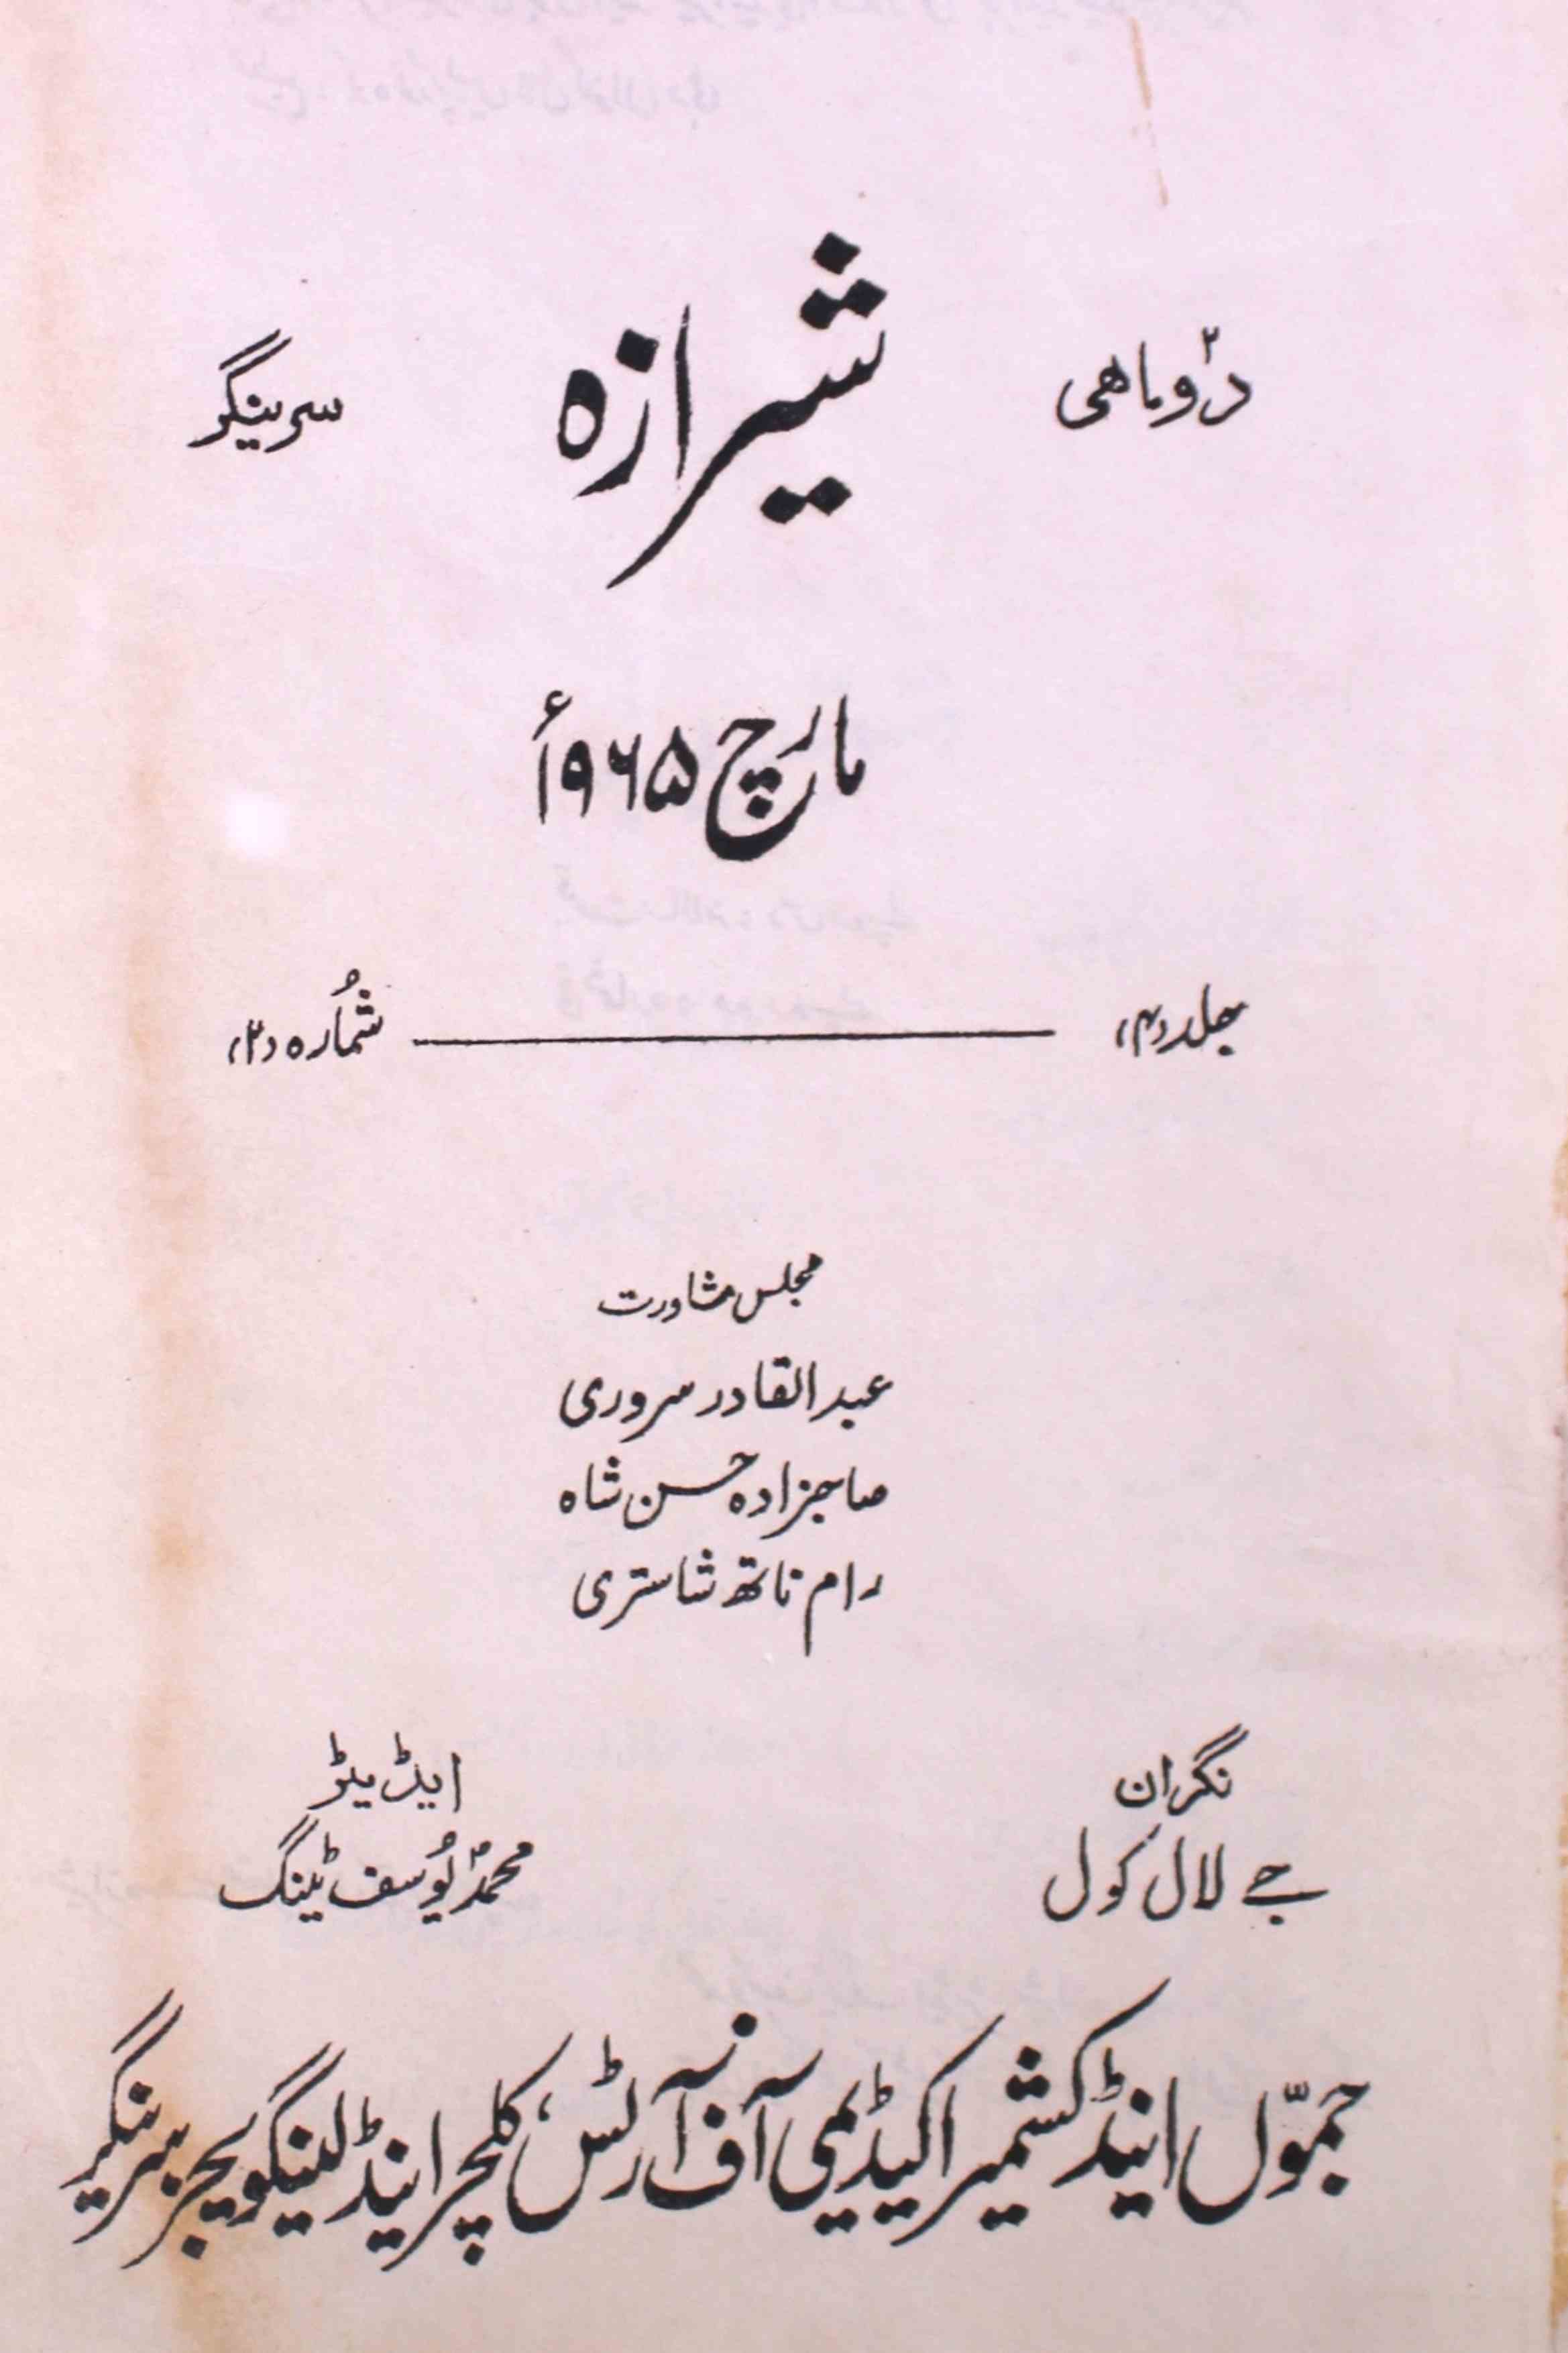 دو ماہی شیرازہ سرینگر
مارچ ۱۹۶۵ء
جلد (۴) شُمارہ (۲)
مجلس مشاورت
عبدالقادر سروری
صاحبزادہ حسن شاہ
رام ناتھ شاستری
نگران ایڈیٹر
جے لال کول محمد یُوسف ٹینگ
جموّں اینڈ کشمیر اکیڈیمی آف آرٹس، کلچر اینڈ لینگویجز سرینگر